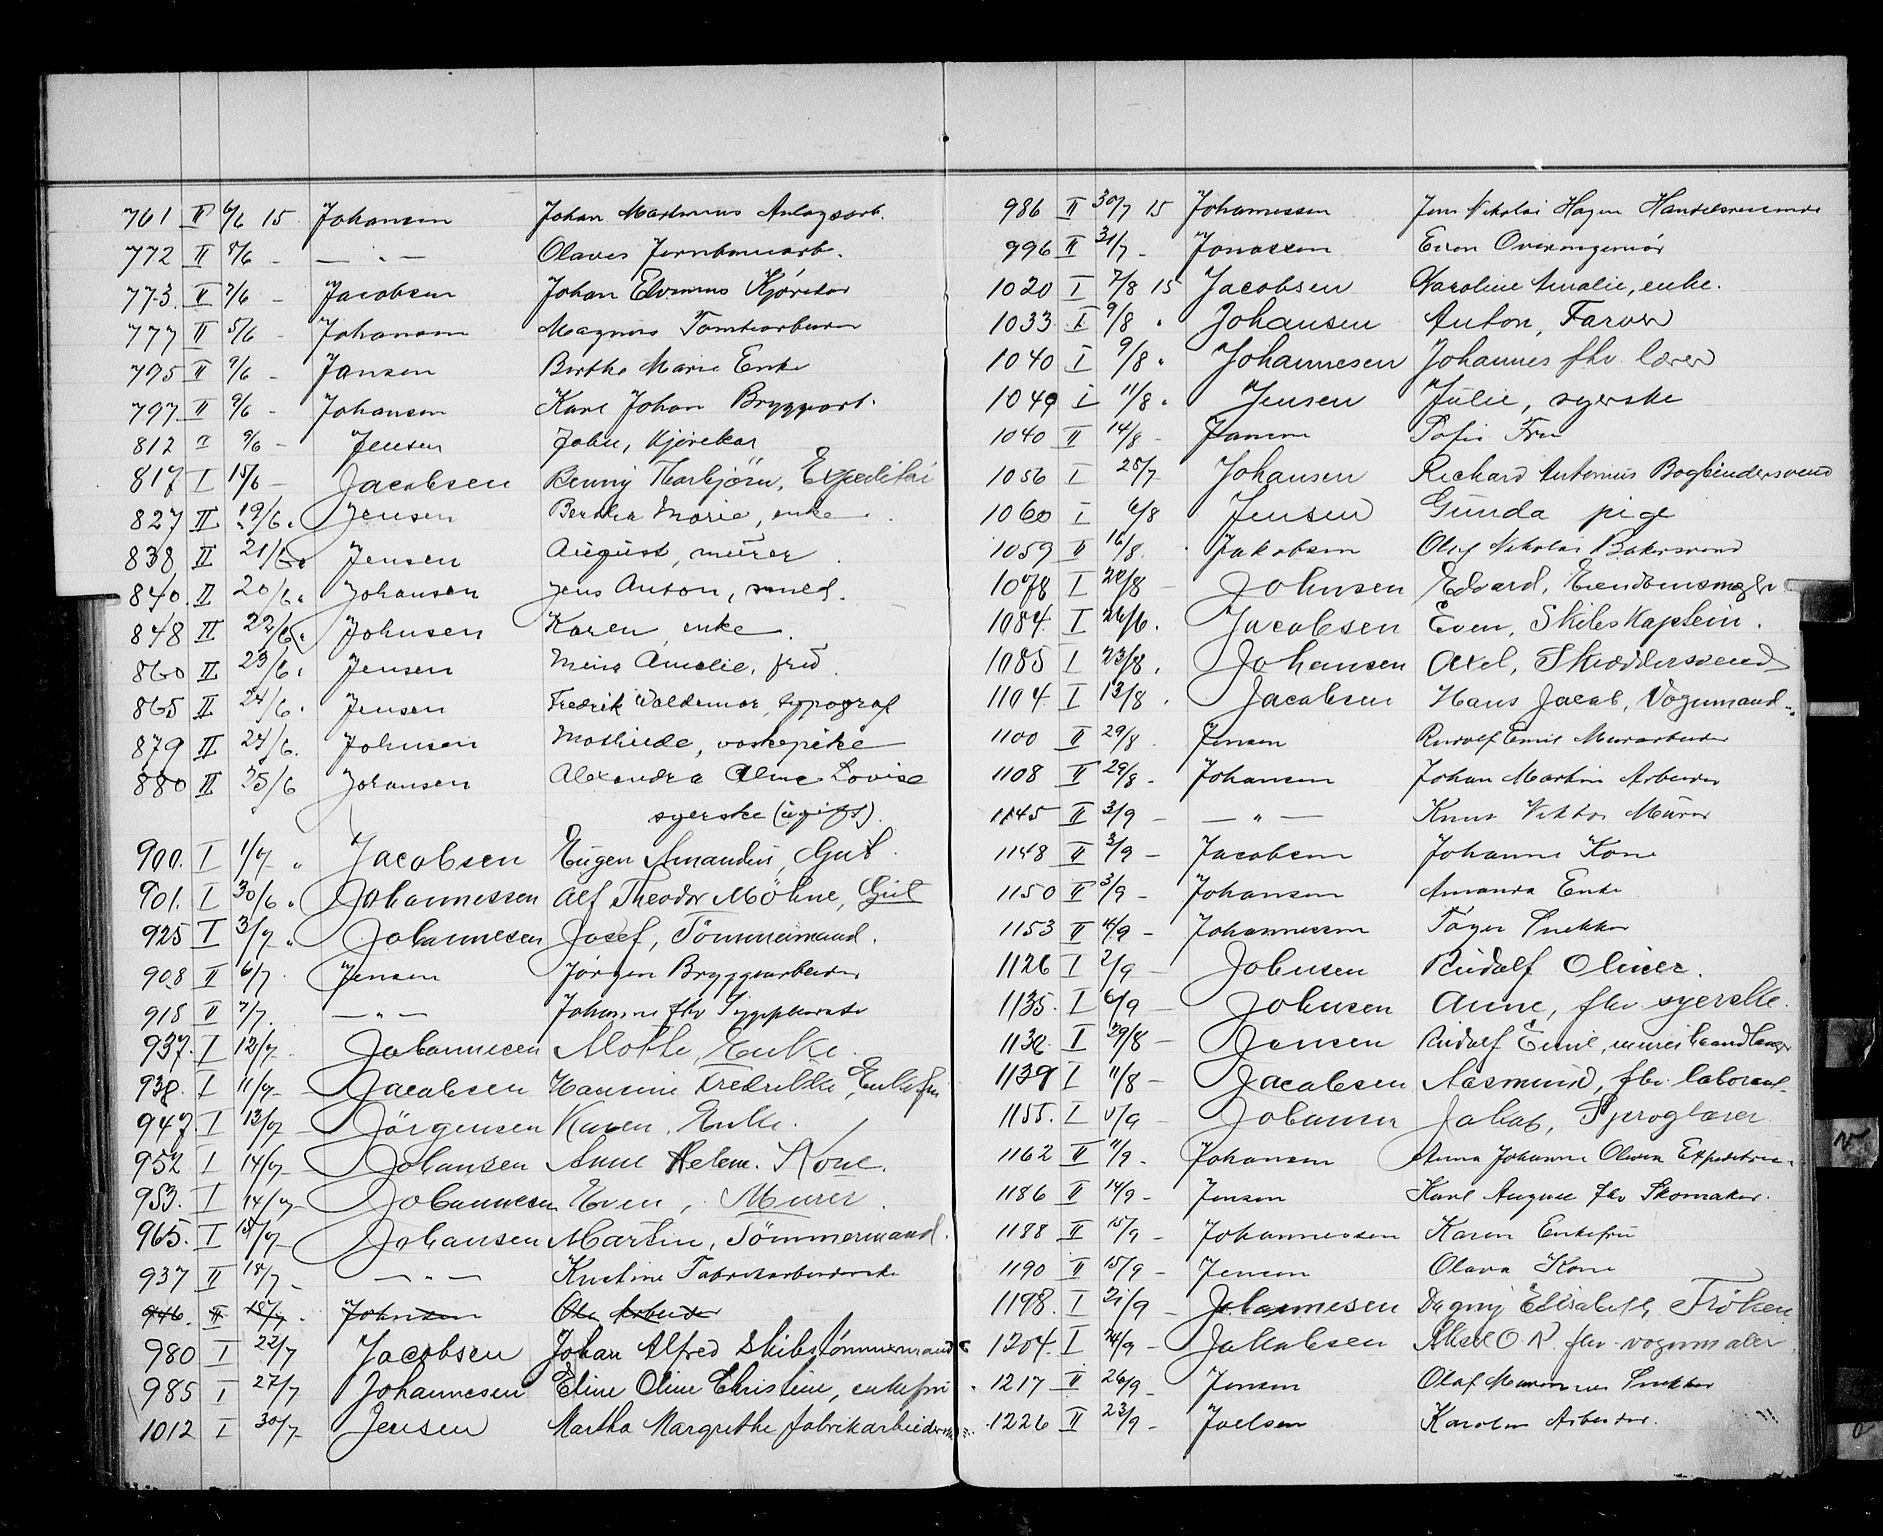 761 II 6/6 15 Johansen Johan Martinius Anlagsarb.
772 II 8/6 - — " — Olaves Jernbanearb.
773. II 7/6 - Jacobsen Johan Kjørekar
777 II 5/6 - Johansen Magnus Tomtearbeider
795 II 9/6 - Jansen Berthe Marie Enke
797 II 9/6 - Johansen Karl Johan Bryggearb.
812 II 9/6 - Jensen John, Kjørekar
817 I 15/6 - Jacobsen Benny Thorbjörn, Expeditør
827 II 19/6 . Jensen Berthe Marie, enke
838 II 21/6 . Jensen August, murer
840. II 20/6 . Johansen Jens Anton, smed.
848 II 22/6 . Johnsen Karen, enke
860 II 23/6 . Jensen Mina Amalie, frú
865 II 24/6 . Jensen Fredrik Waldemar, typograf
879 II 24/6. Johnsen Mathilde, vaskepike
880 II 25/6 Johansen Alexandra Alma Lovise
syerske (ugift).
900. I 1/7 " Jacobsen Eugen Amandus, Gut.
901. I 30/6 " Johannessen Alf Theodor Möhne, Gut
925 I 3/7 " Johannesen Josef, Tömmermand.
908 II 6/7 . Jensen Jørgen Bryggearbeider
918 II 7/7. — " — Johanne fhv Sygepleierske
937. I 12/7 - Johannesen Enke.
938. I 11/7 - Jacobsen Hansine Fredrikke, Enkefru
947. I 13/7 - Jörgensen Karen, Enke.
952 I 14/7 - Johansen Anne Helene. Kone.
953. I 14/7 - Johannesen Even, Murer.
965. I 15/7 - Johansen Martin, Tömmermand.
937 II 18/7 - — " — Kristine Fabrikarbeiderske
946. II 18/7. Johnsen Ole Arbeider
980 I 22/7 Jacobsen Johan Alfred Skibstömmermand
985 I 27/7 Johannesen Eline Oline Christine, enkefru
1012 I 30/7 Jensen Martha Margrethe fabrikarbeiderske
986 II 30/7 15 Johannessen Jens Nikolai Hagen Handelsreisende
996 II 31/7 - Jonassen Even Overingeniør
1020 I 7/8 15 Jacobsen Karoline Amalie, enke.
1033 I 9/8 " Johansen Anton, Farver
1040 I 9/8 " Johannesen Johannes fhv. lærer
1049 I 11/8 " Jensen Julie, syerske
1040 II 14/8 - Jansen Sofie Fru
1056 I 25/7 Johansen Richard Antonius Bogbindersvend
1060 I 6/8 Jensen Gunda pige
1059 II 16/8. Jakobsen Olaf Nikolai Bakersvend
1078 I 22/8 - Johnsen Edvard, Eiendomsmægler
1084. I 26/6. Jacobsen Even, Skibskaptein.
1085 I 23/8. Johansen Axel, Skræddersvend
1104. I 13/8 . Jacobsen Hans Jacob, Vognmand.
1100 II 29/8 . Jensen Rudolf Emil Murarbeider
1108 II 29/8 - Johansen Johan Martin Arbeider
1145 II 3/9 - — " — Knut Viktor Murer
1148 II 3/9 - Jacobsen Johanne Kone
1150 II 3/9 - Johansen Amanda Enke
1153 II 4/9 - Johannessen Snekker
1126 I 2/9 - Johnsen Rudolf Oliver.
1135. I 6/9 - Johnsen Anne, fhv syerske.
I 29/8 - Jensen Rudolf Emil, murerhaandlanger
1139 I 11/8 - Jacobsen Aasmund, fhv. laborant.
1155. I 5/9 - Johansen Jakob, Sproglærer
1162 II 11/9 - Johansen Anna Johanne Olivia Expeditrice
1186 II 14/9 - Jensen Karl August fhv Skomaker.
1188 II 15/9 - Johannessen Karen Enkefru
1190 II 15/9 - Jensen Olava Kone
1198. I 21/9 - Johannesen Dagny Elisabeth, Fröken
1204. I 24/9 - Jakobsen O. R. fhv. vognmaler.
1217 II 26/9 - Jensen Olaf Snekker
1226 II 23/9 - Joelsen Arbeider.